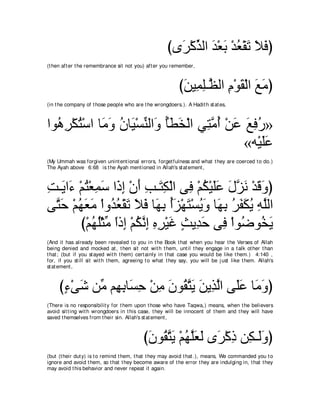 (فَلاَ تَقْعُدْ بَعْدَ الذِّكْرَى)
(then after the remembrance sit not you) after you remember,
(مَعَ الْقَوْمِ الظَّـلِمِينَ)
(in the company of those people who are the wrongdoers.). A Hadith states,
«رُفِعَ عَنْ أُمَّتِي الْخَطَأُ وَالنِّسْيَانُ وَمَا اسْتُكْرِهُوا عَلَيْه»
(My Ummah was forgiven unintentional errors, forgetfulness and what they are coerced to do.) The Ayah above 6:68 is the Ayah mentioned in Allah's statement,
(وَقَدْ نَزَّلَ عَلَيْكُمْ فِى الْكِتَـبِ أَنْ إِذَا سَمِعْتُمْ ءَايَـتِ اللَّهِ يُكْفَرُ بِهَا وَيُسْتَهْزَأُ بِهَا فَلاَ تَقْعُدُواْ مَعَهُمْ حَتَّى يَخُوضُواْ فِى حَدِيثٍ غَيْرِهِ إِنَّكُمْ إِذاً مِّثْلُهُمْ)
(And it has already been revealed to you in the Book that when you hear the Verses of Allah being denied and mocked at, then sit not with them, until they engage in a talk other than that; (but if you stayed with them) certainly in that case you would be like them.) 4:140 , for, if you still sit with them, agreeing to what they say, you will be just like them. Allah's statement,
(وَمَا عَلَى الَّذِينَ يَتَّقُونَ مِنْ حِسَابِهِم مِّن شَىْءٍ)
(There is no responsibility for them upon those who have Taqwa,) means, when the believers avoid sitting with wrongdoers in this case, they will be innocent of them and they will have saved themselves from their sin. Allah's statement,
(وَلَـكِن ذِكْرَى لَعَلَّهُمْ يَتَّقُونَ)
(but (their duty) is to remind them, that they may avoid that.), means, We commanded you to ignore and avoid them, so that they become aware of the error they are indulging in, that they may avoid this behavior and never repeat it again.